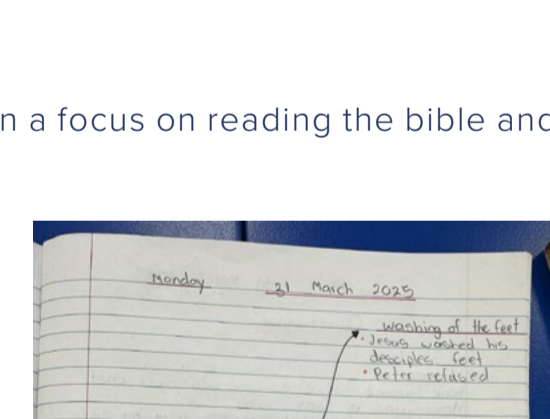 n a focus on reading the bible and
Monday 31 March 2025
washing of the feet
• Jesus washed his
desciples feet
• Peter refused